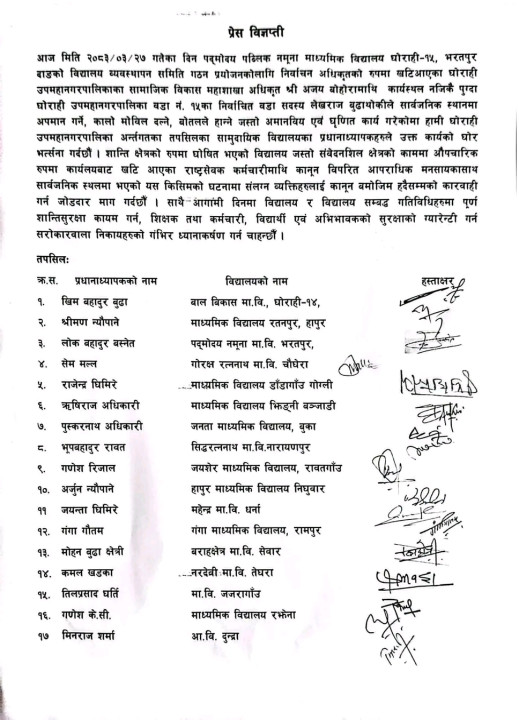 प्रेस विज्ञप्ती
आज मिति २०८३/०३/२७ गतेका दिन पद्मोदय पब्लिक नमूना माध्यमिक विद्यालय घोराही-१५, भरतपुर
दाङको विद्यालय व्यवस्थापन समिति गठन प्रयोजनकोलागि निर्वाचन अधिकृतको रुपमा खटिआएका घोराही
उपमहानगरपालिकाका सामाजिक विकास महाशाखा अधिकृत श्री अजय बोहोरामाथि कार्यस्थल नजिकै पुग्दा
घोराही उपमहानगरपालिका वडा नं. १५का निर्वाचित वडा सदस्य लेखराज बुढाथोकीले सार्वजनिक स्थानमा
अपमान गर्ने, कालो मोविल दल्ने, बोतलले हान्ने जस्तो अमानविय एवं घृणित कार्य गरेकोमा हामी घोराही
उपमहानगरपालिका अर्न्तगतका तपसिलका सामुदायिक विद्यालयका प्रधानाध्यापकहरुले उक्त कार्यको घोर
भर्त्सना गर्दछौं । शान्ति क्षेत्रको रुपमा घोषित भएको विद्यालय जस्तो संवेदनशिल क्षेत्रको काममा औपचारिक
रुपमा कार्यलयबाट खटि आएका राष्ट्रसेवक कर्मचारीमाथि कानून विपरित आपराधिक मनसायकासाथ
सार्वजनिक स्थलमा भएको यस किसिमको घटनामा संलग्न व्यक्तिहरुलाई कानून बमोजिम हदैसम्मको कारवाही
गर्न जोडदार माग गर्दछौं । साथै आगांमी दिनमा विद्यालय र विद्यालय सम्बद्ध गतिविधिहरुमा पूर्ण
शान्तिसुरक्षा कायम गर्न, शिक्षक तथा कर्मचारी, विद्यार्थी एवं अभिभावकको सुरक्षाको ग्यारेन्टी गर्न
सरोकारवाला निकायहरुको गंभिर ध्यानाकर्षण गर्न चाहन्छौं ।
तपसिलः
क्र.स. प्रधानाध्यापकको नाम विद्यालयको नाम हस्ताक्षर
१. खिम बहादुर बुढा बाल विकास मा.वि., घोराही-१४,
२. श्रीमण न्यौपाने माध्यमिक विद्यालय रतनपुर, हापुर
३. लोक बहादुर बस्नेत पद्मोदय नमूना मा.वि. भरतपुर,
४. सेम मल्ल गोरक्ष रत्ननाथ मा.वि. चौघेरा
५. राजेन्द्र घिमिरे माध्यमिक विद्यालय डाँडागाँउ गोग्ली
६. ऋषिराज अधिकारी माध्यमिक विद्यालय झिङ्नी बञ्जाडी
७. पुस्करनाथ अधिकारी जनता माध्यमिक विद्यालय, बुका
८. भूपबहादुर रावत सिद्धरत्ननाथ मा.वि.नारायणपुर
९. गणेश रिजाल जयशेर माध्यमिक विद्यालय, रावतगाँउ
१०. अर्जुन न्यौपाने हापुर माध्यमिक विद्यालय निघुवार
११ जयन्ता घिमिरे महेन्द्र मा.वि. धर्ना
१२. गंगा गौतम गंगा माध्यमिक विद्यालय, रामपुर
१३. मोहन बुढा क्षेत्री बराहक्षेत्र मा.वि. सेवार
१४. कमल खडका नरदेवी मा.वि. तेघरा
१५. तिलप्रसाद घर्ति मा.वि. जजरागाँउ
१६. गणेश के.सी. माध्यमिक विद्यालय रझेना
१७ मिनराज शर्मा आ.वि. दुन्द्रा